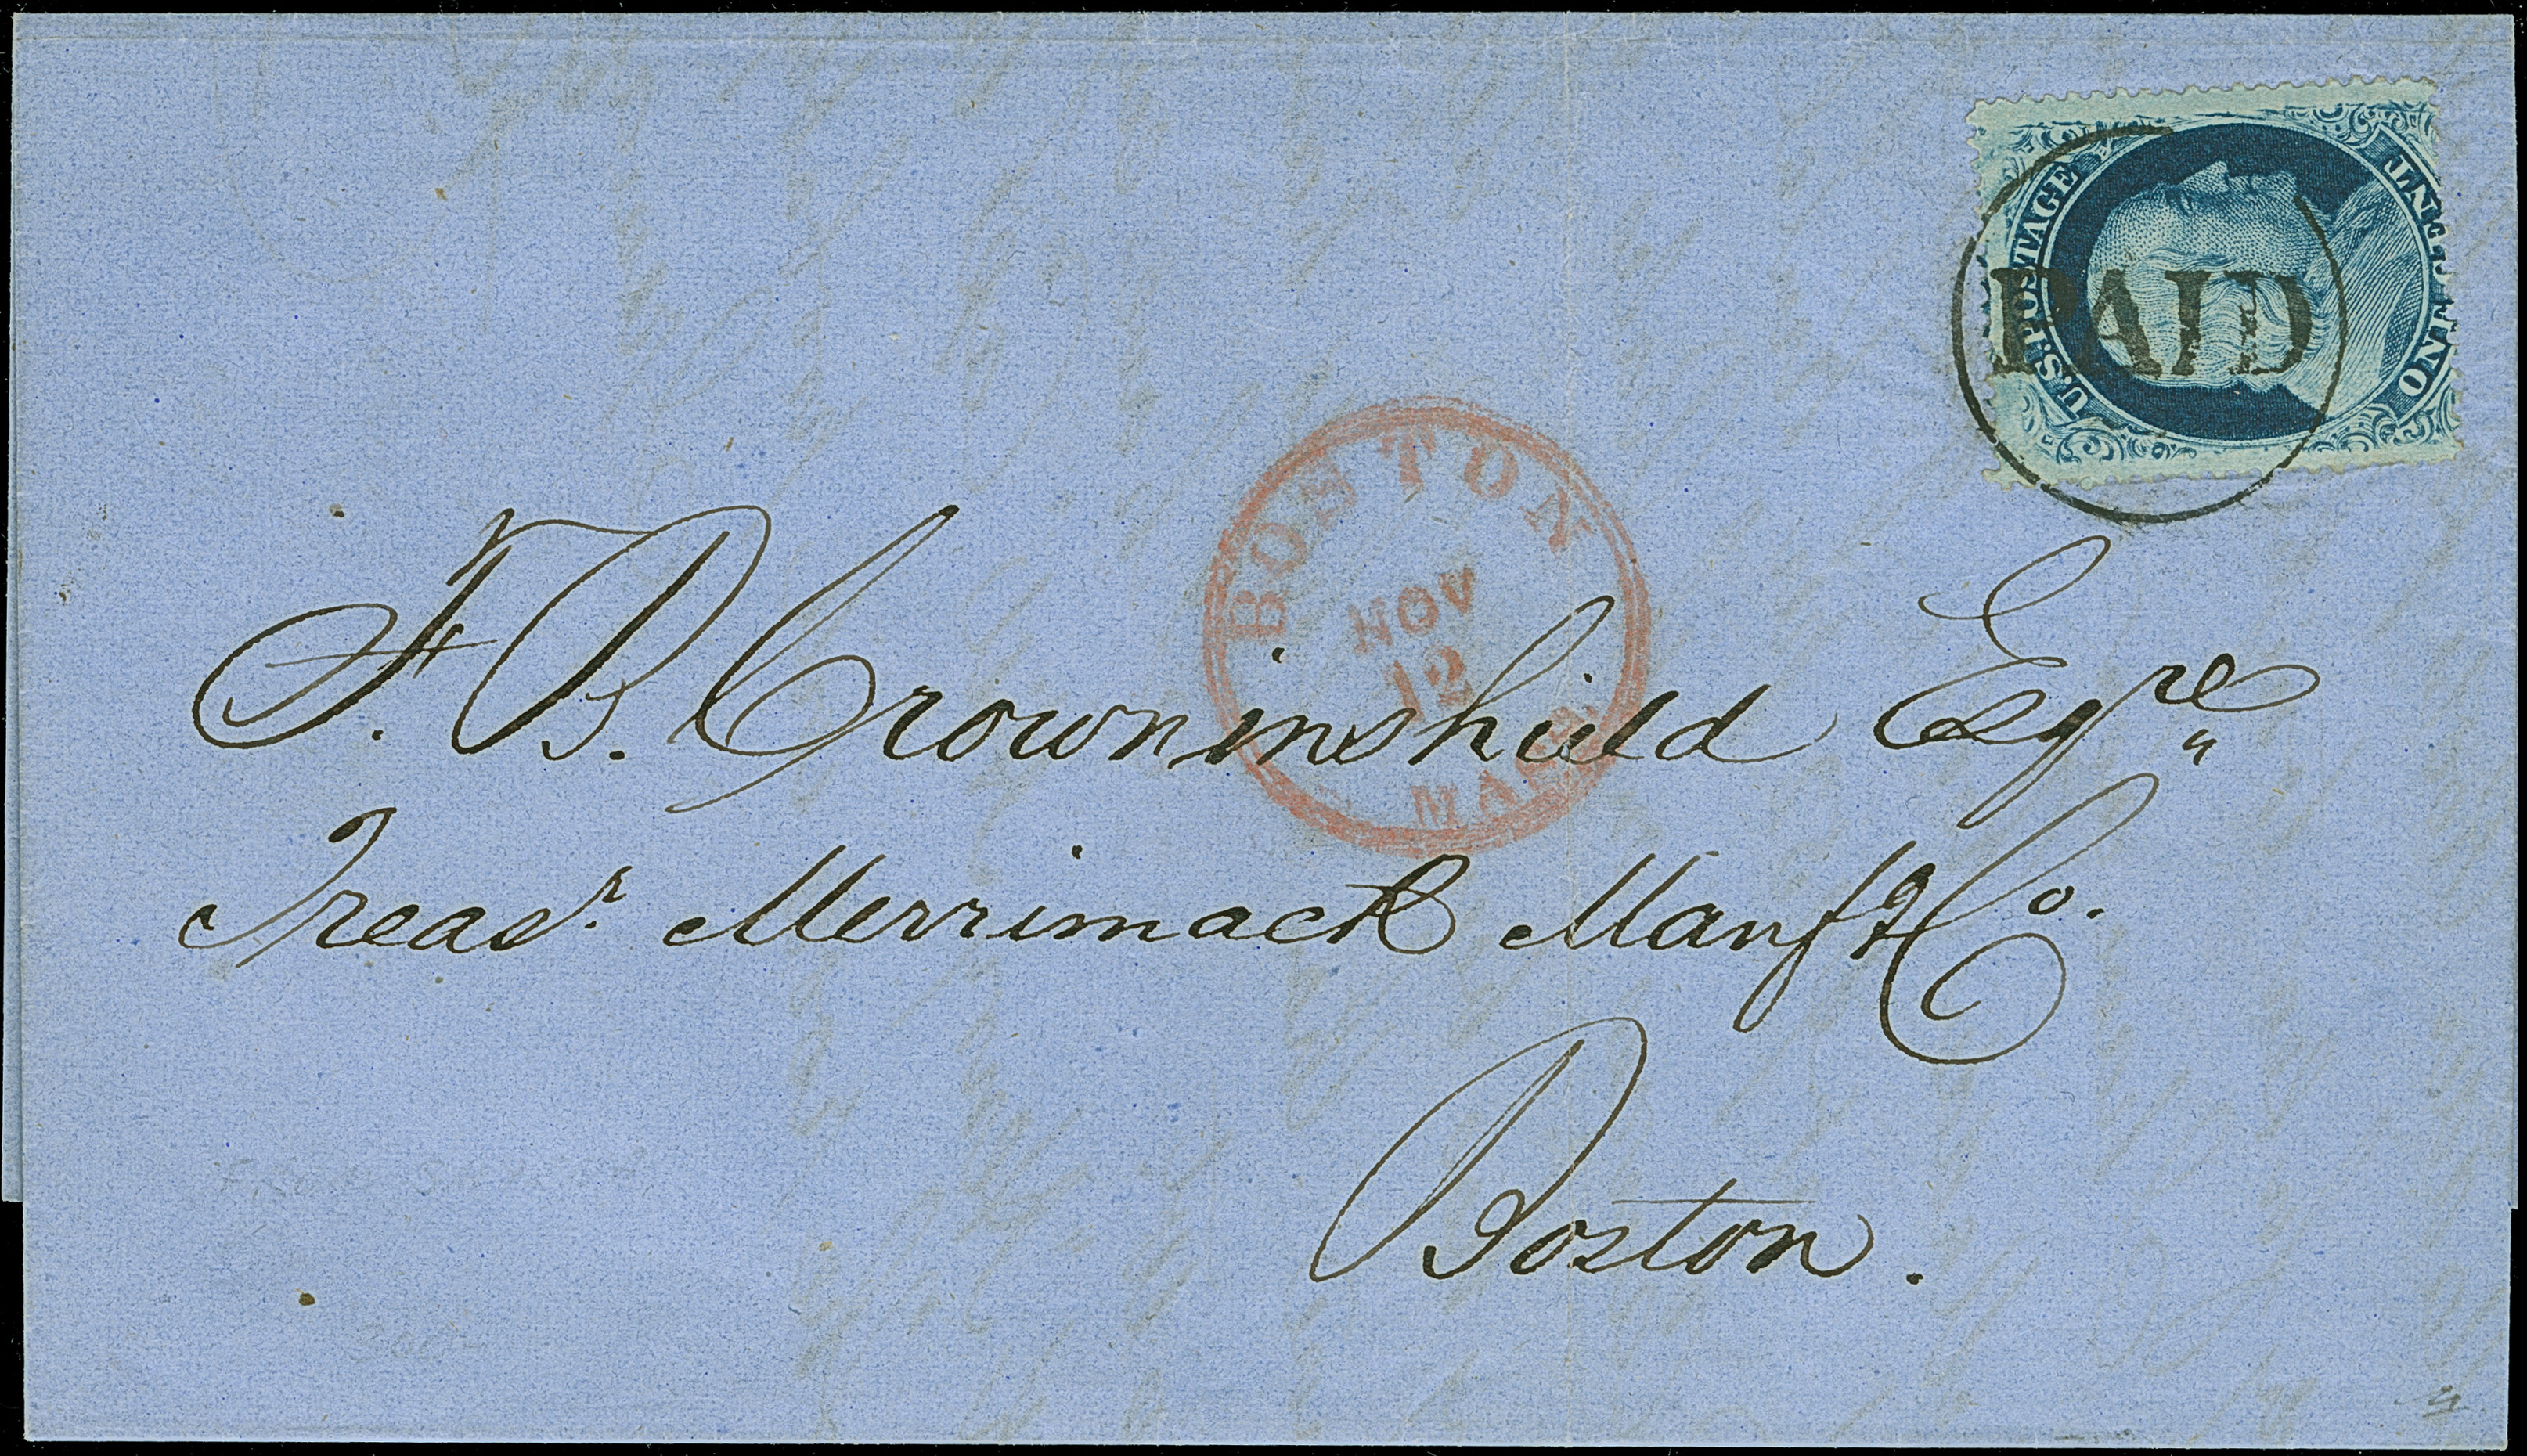 U.S. POSTAGE
ONE CENT
PAID
BOSTON
NOV
12
MASS.
F. B. Crowninshield Esqre
Treasr. Merrimack Manfg Co.
Boston.